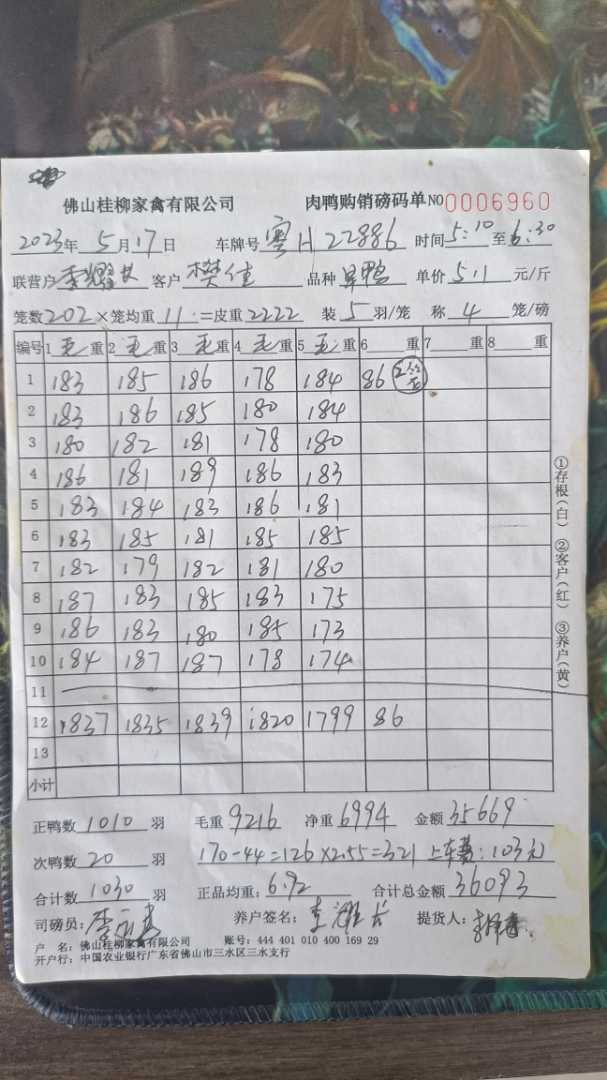 佛山桂柳家禽有限公司 肉鸭购销磅码单 NO 0006960
2023年 5月17日 车牌号 粤H22886 时间 5:10 至 6:30
联营户 客户 樊佳 品种 鸭 单价 5.1 元/斤
笼数 202 ×笼均重 11 =皮重 2222 装 5 羽/笼 称 4 笼/磅
编号 1 毛 重 2 毛 重 3 毛 重 4 毛 重 5 毛 重 6 重 7 重 8 重
1 183 185 186 178 184 86 2笼
2 183 186 185 180 184
3 180 182 181 178 180
4 186 181 189 186 183
5 183 184 183 186 181
6 183 185 181 185 185
7 182 179 182 181 180
8 187 183 185 183 175
9 186 183 180 185 173
10 184 187 187 178 174
11
12 1837 1835 1839 1820 1799 86
13
小计
正鸭数 1010 羽 毛重 9216 净重 6994 金额 35669
次鸭数 20 羽 170-44=126×2.55=321 上车费:103元
合计数 1030 羽 正品均重: 6.92 合计总金额 36093
司磅员: 养户签名: 提货人:
户 名: 佛山桂柳家禽有限公司 账号: 444 401 010 400 169 29
开户行: 中国农业银行广东省佛山市三水区三水支行
①存根(白) ②客户(红) ③养户(黄)